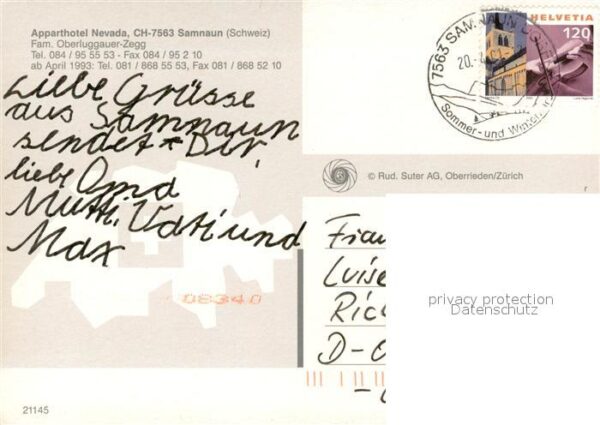 Apparthotel Nevada, CH-7563 Samnaun (Schweiz)
Fam. Oberluggauer-Zegg
Tel. 084 / 95 55 53 - Fax 084 / 95 2 10
ab April 1993: Tel. 081 / 868 55 53, Fax 081 / 868 52 10
Liebe Grüsse
aus Samnaun
sendet * Dir,
liebe Oma
Mutti, Vati und
Max
HELVETIA
120
7563 SAMNAUN
Sommer- und Winter
© Rud. Suter AG, Oberrieden/Zürich
Frau
Luise
Ric
D-0
08340
privacy protection
Datenschutz
21145